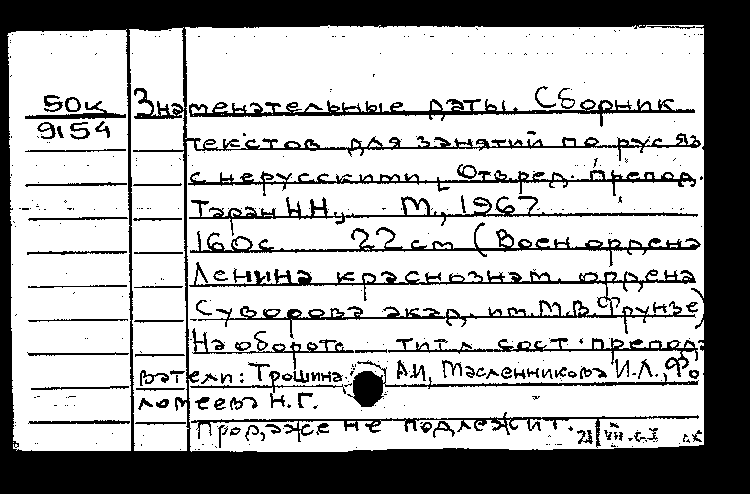 50к
9154
Знаменательные даты. Сборник
текстов для занятий по рус яз.
с нерусскими, Отв. ред. препод.
Таран Н.Н., М., 1967
160с. 22 см (Воен ордена
Ленина краснознам. ордена
Суворова акад. им. М.В. Фрунзе)
На обороте тит л сост. препода
ватели: Трошина А.И, Масленникова И.Л., Фо
ломеева Н.Г.
Продаже не подлежит.